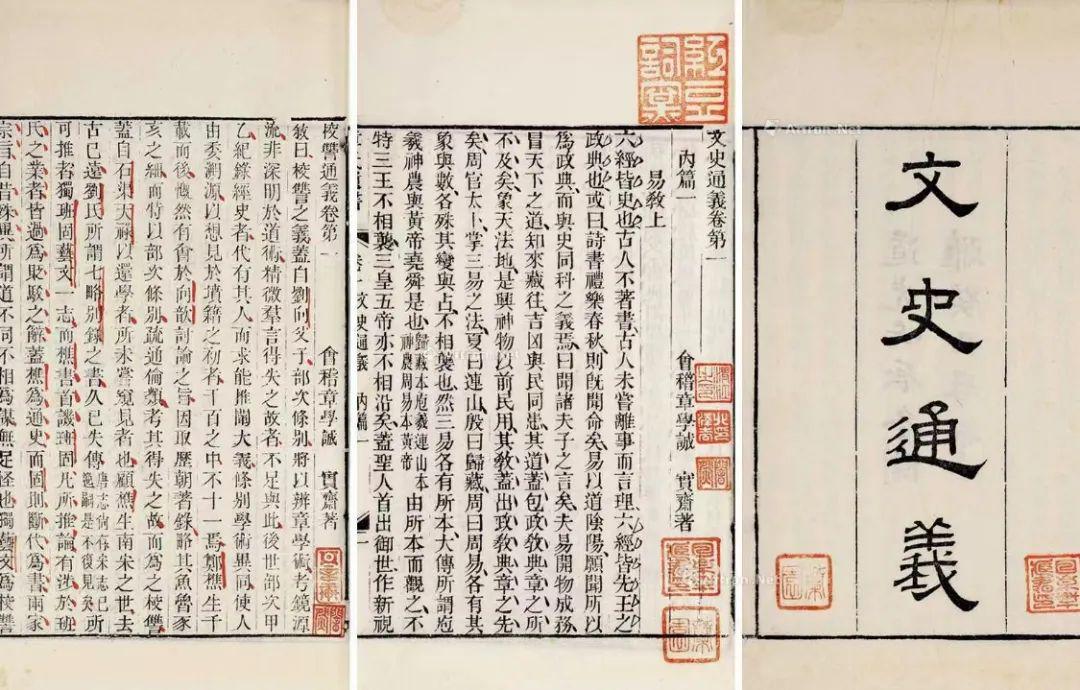 文史通義
Artron.Net
文史通義卷第一
內篇一 會稽章學誠 實齋著
易教上
六經皆史也古人不著書古人未嘗離事而言理六經皆先王之
政典也或曰詩書禮樂春秋則旣聞命矣易以道陰陽願聞所以
爲政典而與史同科之義焉曰聞諸夫子之言矣夫易開物成務
冒天下之道知來藏往吉凶與民同患其道蓋包政教典章之所
不及矣象天法地是興神物以前民用其教蓋出政教典章之先
矣周官太卜掌三易之法夏曰連山殷曰歸藏周曰周易各有其
象與數各殊其變與占不相襲也然三易各有所本大傳所謂庖
羲神農與黃帝堯舜是也歸藏本庖羲連山本神農周易本黃帝由所本而觀之不
特三王不相襲三皇五帝亦不相沿矣蓋聖人首出御世作新視
校讐通義卷第一 會稽章學誠 實齋著
敘曰校讐之義蓋自劉向父子部次條別將以辨章學術考鏡源
流非深明於道術精微羣言得失之故者不足與此後世部次甲
乙紀錄經史者代有其人而求能推闡大義條別學術異同使人
由委溯源以想見於墳籍之初者千百之中不十一焉鄭樵生千
載而後慨然有會於向歆討論之旨因取歷朝著錄略其魚魯豕
亥之細而特以部次條別疏通倫類考其得失之故而爲之校讐
蓋自石渠天祿以還學者所未嘗窺見者也顧樵生南宋之世去
古已遠劉氏所謂七略別錄之書久已失傳唐志尚有宋志已逸嗣是不復見矣所
可推者獨班固藝文一志而樵書首譏班固凡所推論有涉於班
氏之業者皆過爲貶駮之辭蓋樵爲通史而固則斷代爲書兩家
宗旨自昔殊異所謂道不同不相爲謀無足怪也獨藝文爲校讐